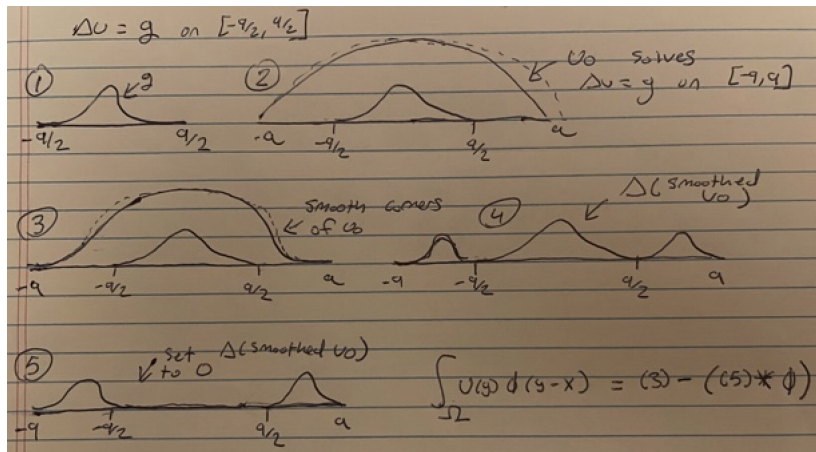 Δu = g on [-a/2, a/2]
① g
-a/2 a/2
② u₀ solves
Δu = g on [-a, a]
-a -a/2 a/2 a
③ smooth corners
of u₀
-a -a/2 a/2 a
④ Δ(smoothed
u₀)
-a -a/2 a/2 a
⑤ set Δ(smoothed u₀)
to 0
-a -a/2 a/2 a
∫_Ω u(y) ϕ(y-x) = (3) - ((5) * ϕ)